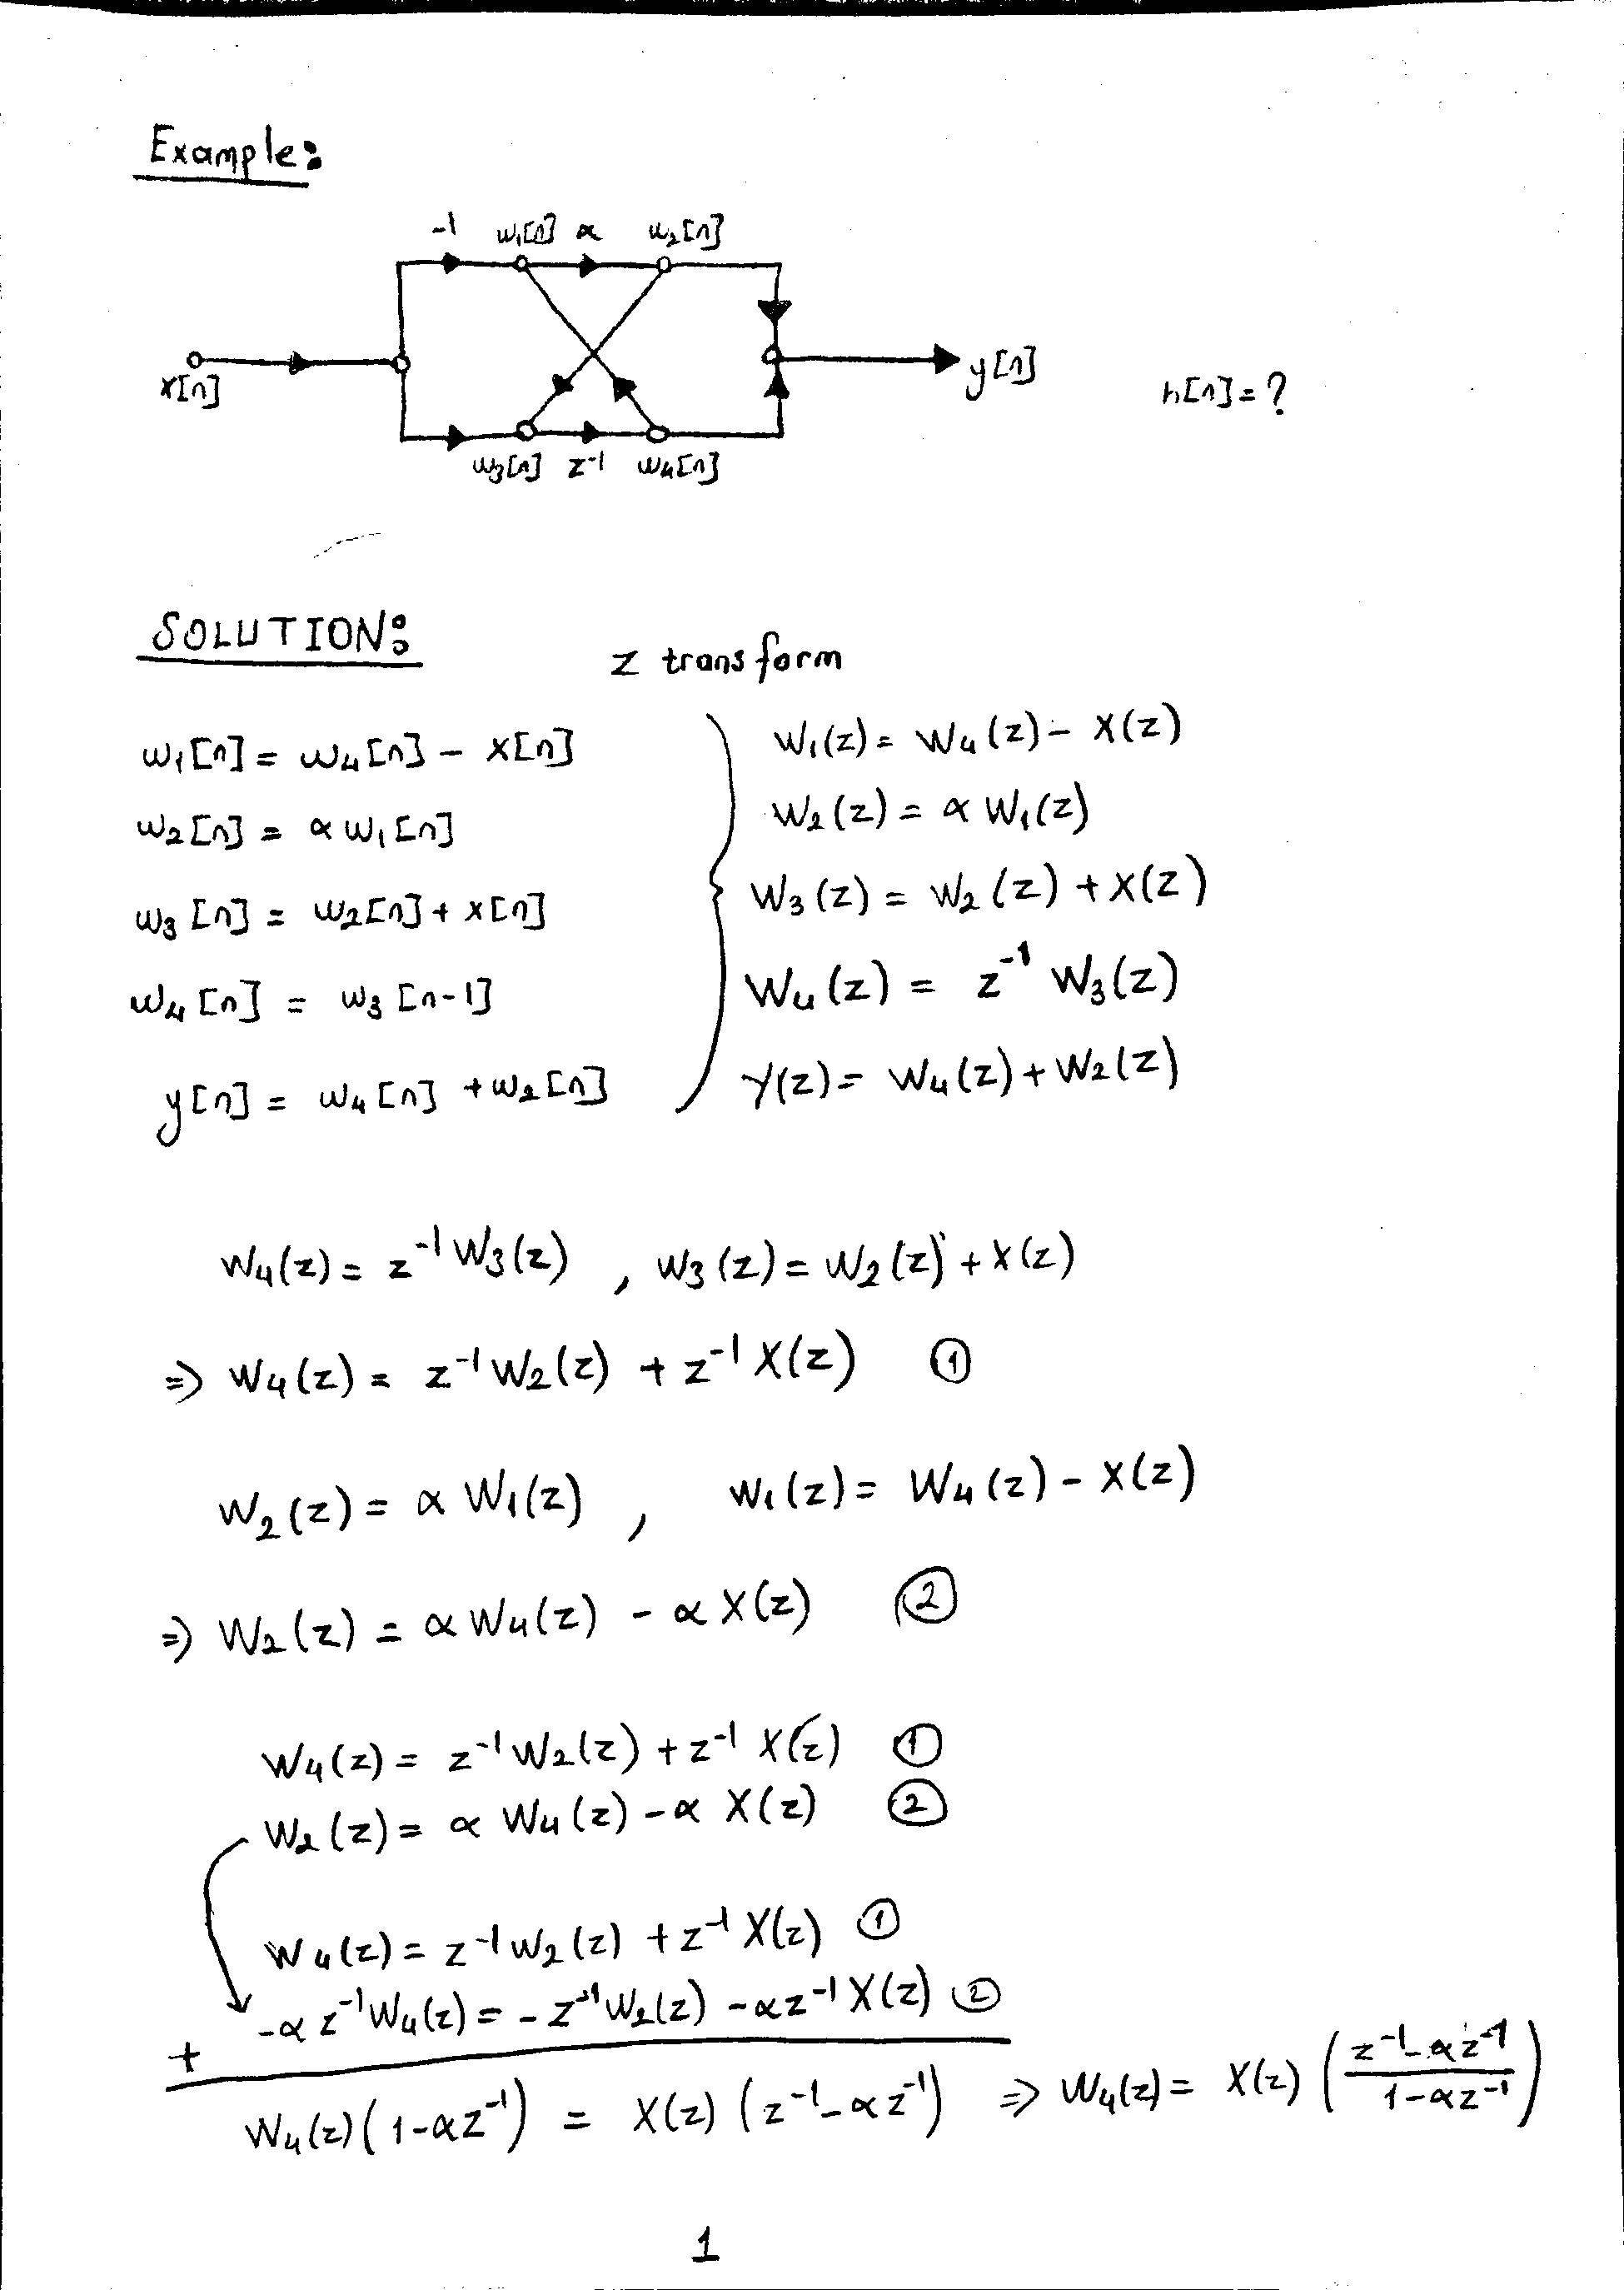 Example:
-1 w₁[n] α w₂[n]
x[n] y[n] h[n]=?
w₃[n] z⁻¹ w₄[n]
SOLUTION:
z transform
w₁[n] = w₄[n] - x[n] W₁(z) = W₄(z) - X(z)
w₂[n] = α w₁[n] W₂(z) = α W₁(z)
w₃[n] = w₂[n] + x[n] W₃(z) = W₂(z) + X(z)
w₄[n] = w₃[n-1] W₄(z) = z⁻¹ W₃(z)
y[n] = w₄[n] + w₂[n] Y(z) = W₄(z) + W₂(z)
W₄(z) = z⁻¹ W₃(z) , W₃(z) = W₂(z) + X(z)
⇒ W₄(z) = z⁻¹ W₂(z) + z⁻¹ X(z) ①
W₂(z) = α W₁(z) , W₁(z) = W₄(z) - X(z)
⇒ W₂(z) = α W₄(z) - α X(z) ②
W₄(z) = z⁻¹ W₂(z) + z⁻¹ X(z) ①
W₂(z) = α W₄(z) - α X(z) ②
W₄(z) = z⁻¹ W₂(z) + z⁻¹ X(z) ①
-α z⁻¹ W₄(z) = - z⁻¹ W₂(z) - α z⁻¹ X(z) ②
+
W₄(z)(1-αz⁻¹) = X(z)(z⁻¹-αz⁻¹) ⇒ W₄(z) = X(z) ((z⁻¹-αz⁻¹)/(1-αz⁻¹))
1